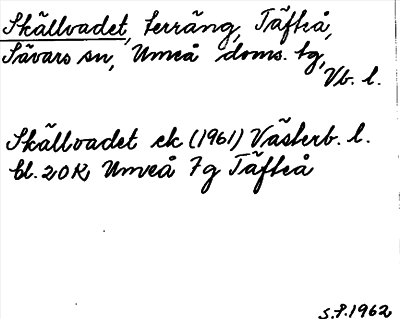 Skällvadet, terräng, Täfteå,
Sävars sn, Umeå doms. tg,
Vb. l.
Skällvadet ek (1961) Västerb. l.
bl. 20 K, Umeå 7g Täfteå
S.P. 1962